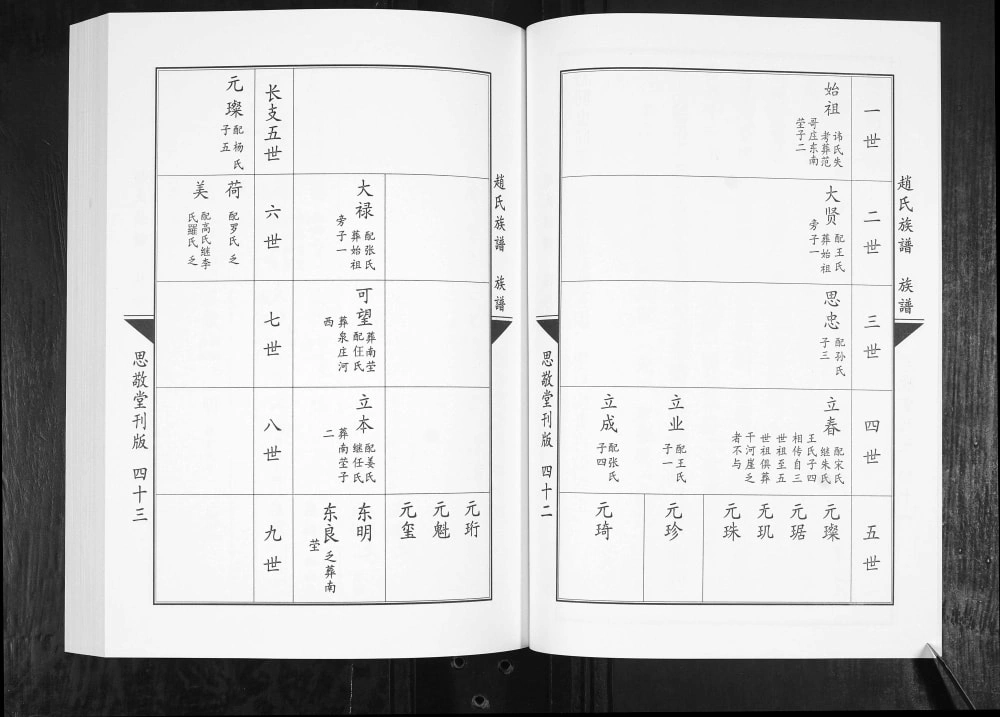 趙氏族譜 族譜
思敬堂刊版 四十二
一世
始祖
讳氏失
考葬范
哥庄东南
茔子二
二世
大贤
配王氏
葬始祖
旁子一
三世
思忠
配孙氏
子三
四世
立春
配宋氏
继朱氏
王氏子四
相传自三
世祖至五
世祖俱葬
干河崖乏
者不与
立业
配王氏
子一
立成
配张氏
子四
五世
元璨
元琚
元玑
元珠
元珍
元琦
趙氏族譜 族譜
元珩
元魁
元玺
大禄
配张氏
葬始祖
旁子一
可望
葬南茔
配任氏
葬泉庄河
西
立本
配姜氏
继任氏
葬南茔子
二
东明
东良
乏葬南
茔
长支五世
六世
七世
八世
九世
元璨
配杨氏
子五
荷
配罗氏乏
美
配高氏继李
氏羅氏乏
思敬堂刊版 四十三